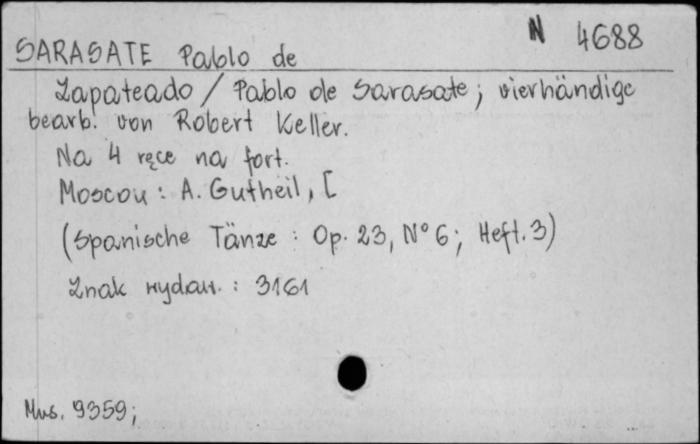 N 4688
SARASATE Pablo de
Zapateado / Pablo de Sarasate; vierhändige
bearb. von Robert Keller.
Na 4 ręce na fort.
Moscou: A. Gutheil, [
(Spanische Tänze: Op. 23, N° 6; Heft. 3)
Znak wydaw.: 3161
Mus. 9359;